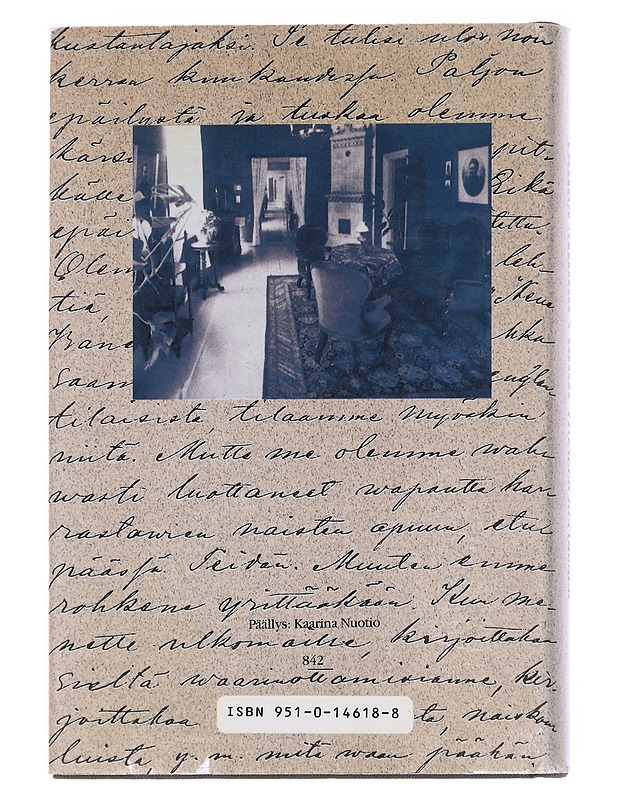 kustantajaksi. Se tulisi ulos noin
kerran kuukaudessa. Paljon
epäilystä ja tuskaa olemme
kärsi pit-
Eikä
epäi tettu.
Olem leh-
tiä,
Saam englan-
tilaisista, tilaamme myöskin
niitä. Mutta me olemme wah-
wasti luottaneet wapautta har-
rastawien naisten apuun, etu-
päässä Teidän. Muuten emme
rohkene yrittääkään. Kun me-
nette ulkomaille, kirjoittakaa
Päällys: Kaarina Nuotio
842
sieltä waarinottamisianne, kir-
joittakaa ta, naiskou-
luista, y. m. mitä waan päähän
ISBN 951-0-14618-8